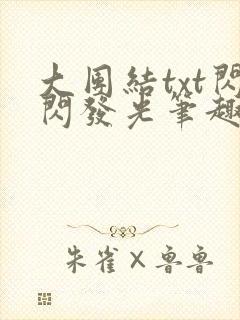 大團結txt閃
閃發光筆趣
朱雀×魯魯